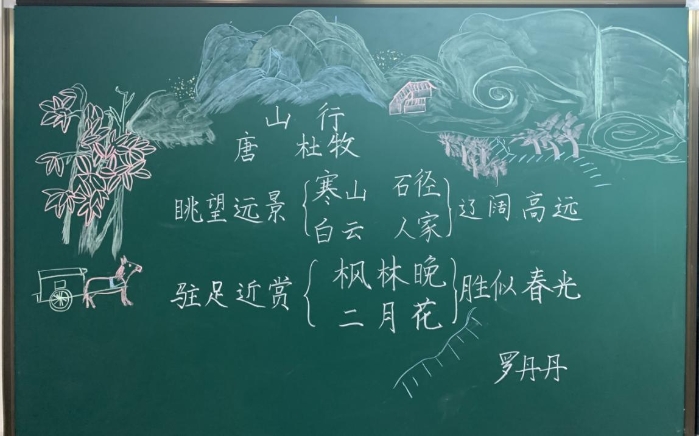 山 行
唐 杜牧
眺望远景 { 寒山 石径 } 辽阔高远
白云 人家
驻足近赏 { 枫林晚 } 胜似春光
二月花
罗丹丹